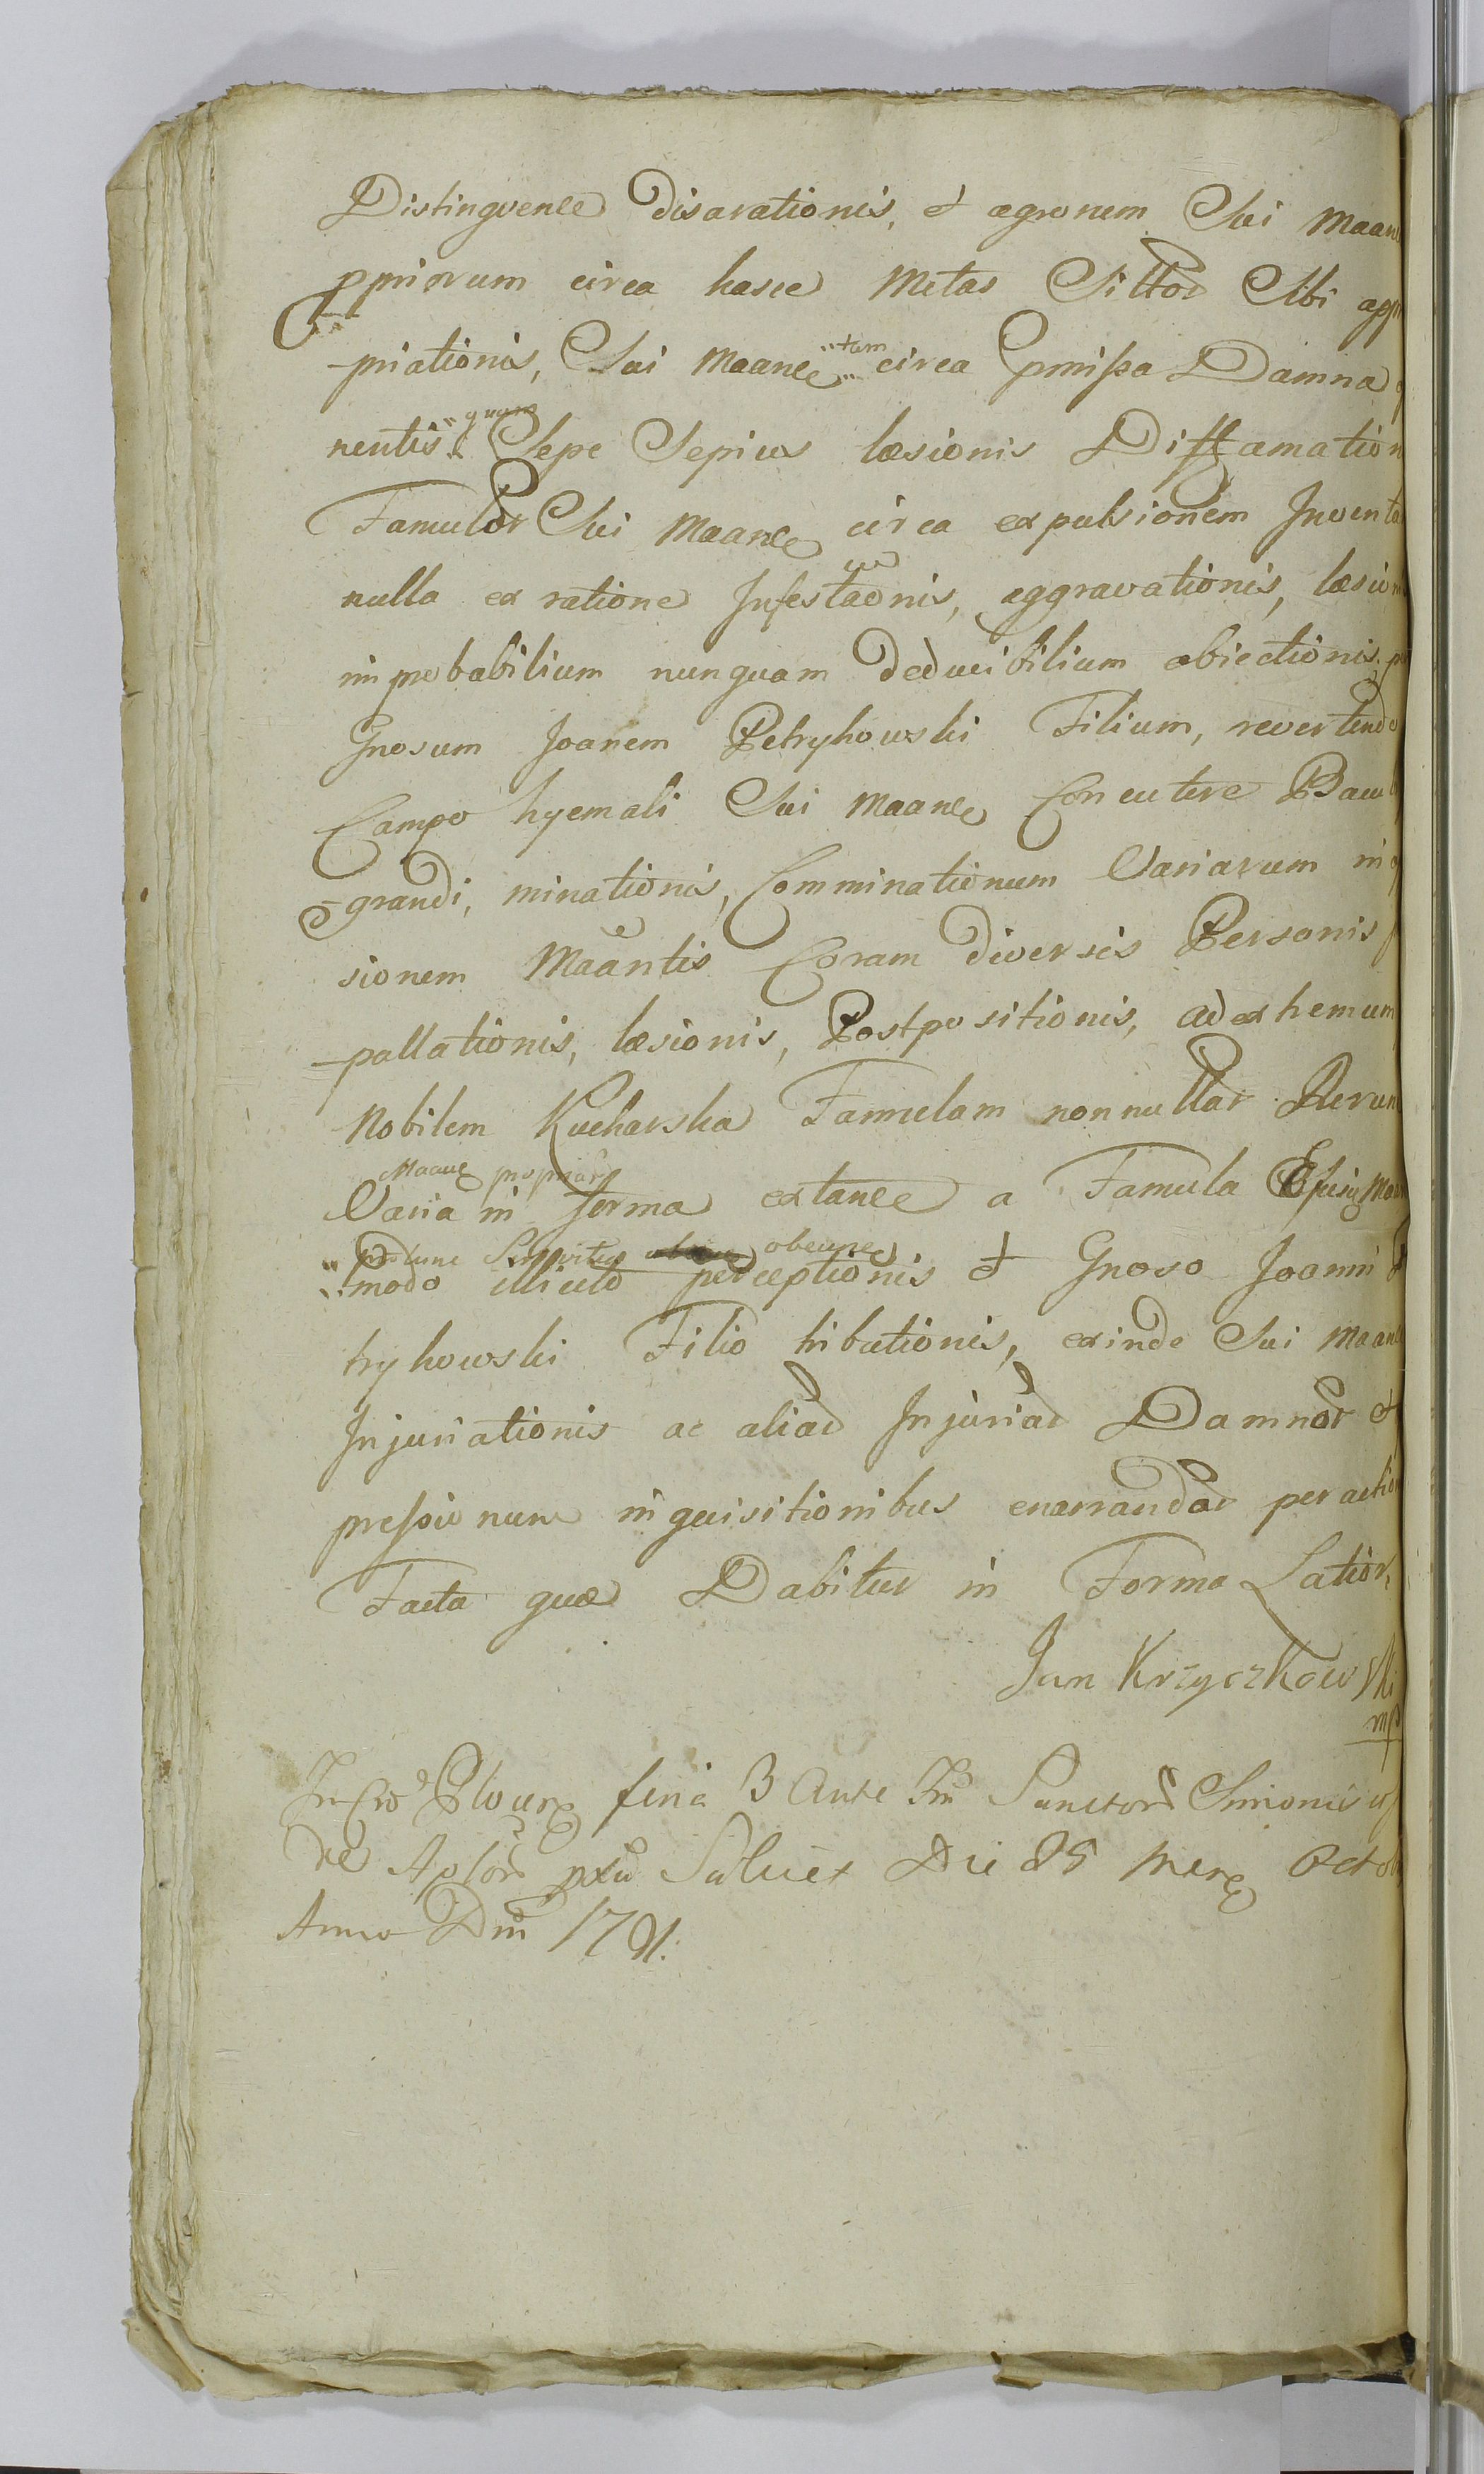 Distingvence disarationis, et agrorum Sui Maan
ppriorum circa hasce Metas Sittor Sibi app
priationis, Sui Maance "tam" circa pmissa Damna
nentis "quam" Sepe Sepius læsionis Diffamation
Famulor Sui Maance circa expulsionem Inventa
nulla ex ratione Infestaonis, aggravationis, læsion
improbabilium nunquam deducibilium obiectionis, p
Gnosum Joanem Petrykowski Filium, revertendo
Campo hyemali Sui Maance Concutere Bacul
grandi, minationis, Comminationum Variarum in
sionem Maantis Coram diversis Personis
pallationis, læsionis, Postpositionis, ad extremum
Nobilem Kucharska Famulam nonnullar Rerum
Maance propriar
Varia in forma extance a Famula
tunc Servitus obeunce
modo illicito perceptionis et Gnoso Joanni
trykowski Filio tributionis, exinde Sui Maance
Injuriationis ac aliar Injuriar Damnor et
pressionum inquisitionibus enarrandar per action
Facta quæ Dabitur in Forma Latior
Jan Krzyczkowski
mp
feria 3 Ante Fm Sanctor Simonis
de Aplor pxa Scilicet Die 25 Mens Octob
Anno Dni 1791.